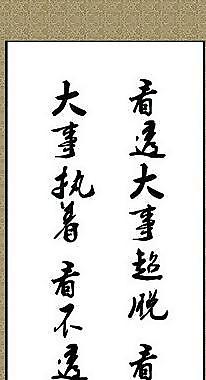 看透大事超脱看
大事执着看不透